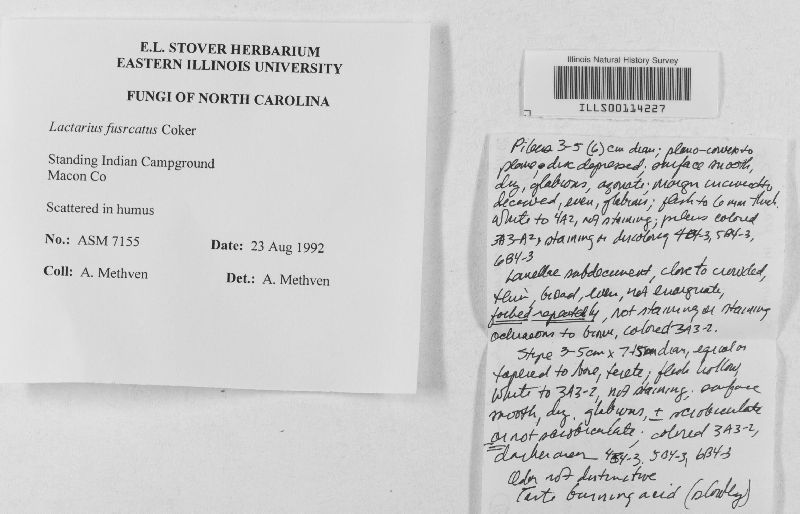 E.L. STOVER HERBARIUM
EASTERN ILLINOIS UNIVERSITY
FUNGI OF NORTH CAROLINA
Lactarius fusrcatus Coker
Standing Indian Campground
Macon Co
Scattered in humus
No.: ASM 7155 Date: 23 Aug 1992
Coll: A. Methven Det.: A. Methven
Illinois Natural History Survey
ILLS00114227
Pileus 3-5 (6) cm diam; plano-convex to
plane, disc depressed; surface smooth,
dry, glabrous, azonate; margin incurved to
decurved, even, glabrous; flesh to 6 mm thick
white to 4A2, not staining; pileus colored
3A3-A2, staining or discoloring 4B4-3, 5B4-3,
6B4-3
Lamellae subdecurrent, close to crowded,
thin, broad, even, not emarginate,
forked repeatedly, not staining or staining
ochraceous to brown, colored 3A3-2.
Stipe 3-5cm x 7-15mm diam, equal or
tapered to base, terete; flesh hollow,
white to 3A3-2, not staining. surface
smooth, dry, glabrous, ± scrobiculate
or not scrobiculate; colored 3A3-2,
darker areas 4B4-3, 5B4-3, 6B4-3
Odor not distinctive
Taste burning acid (slowly)